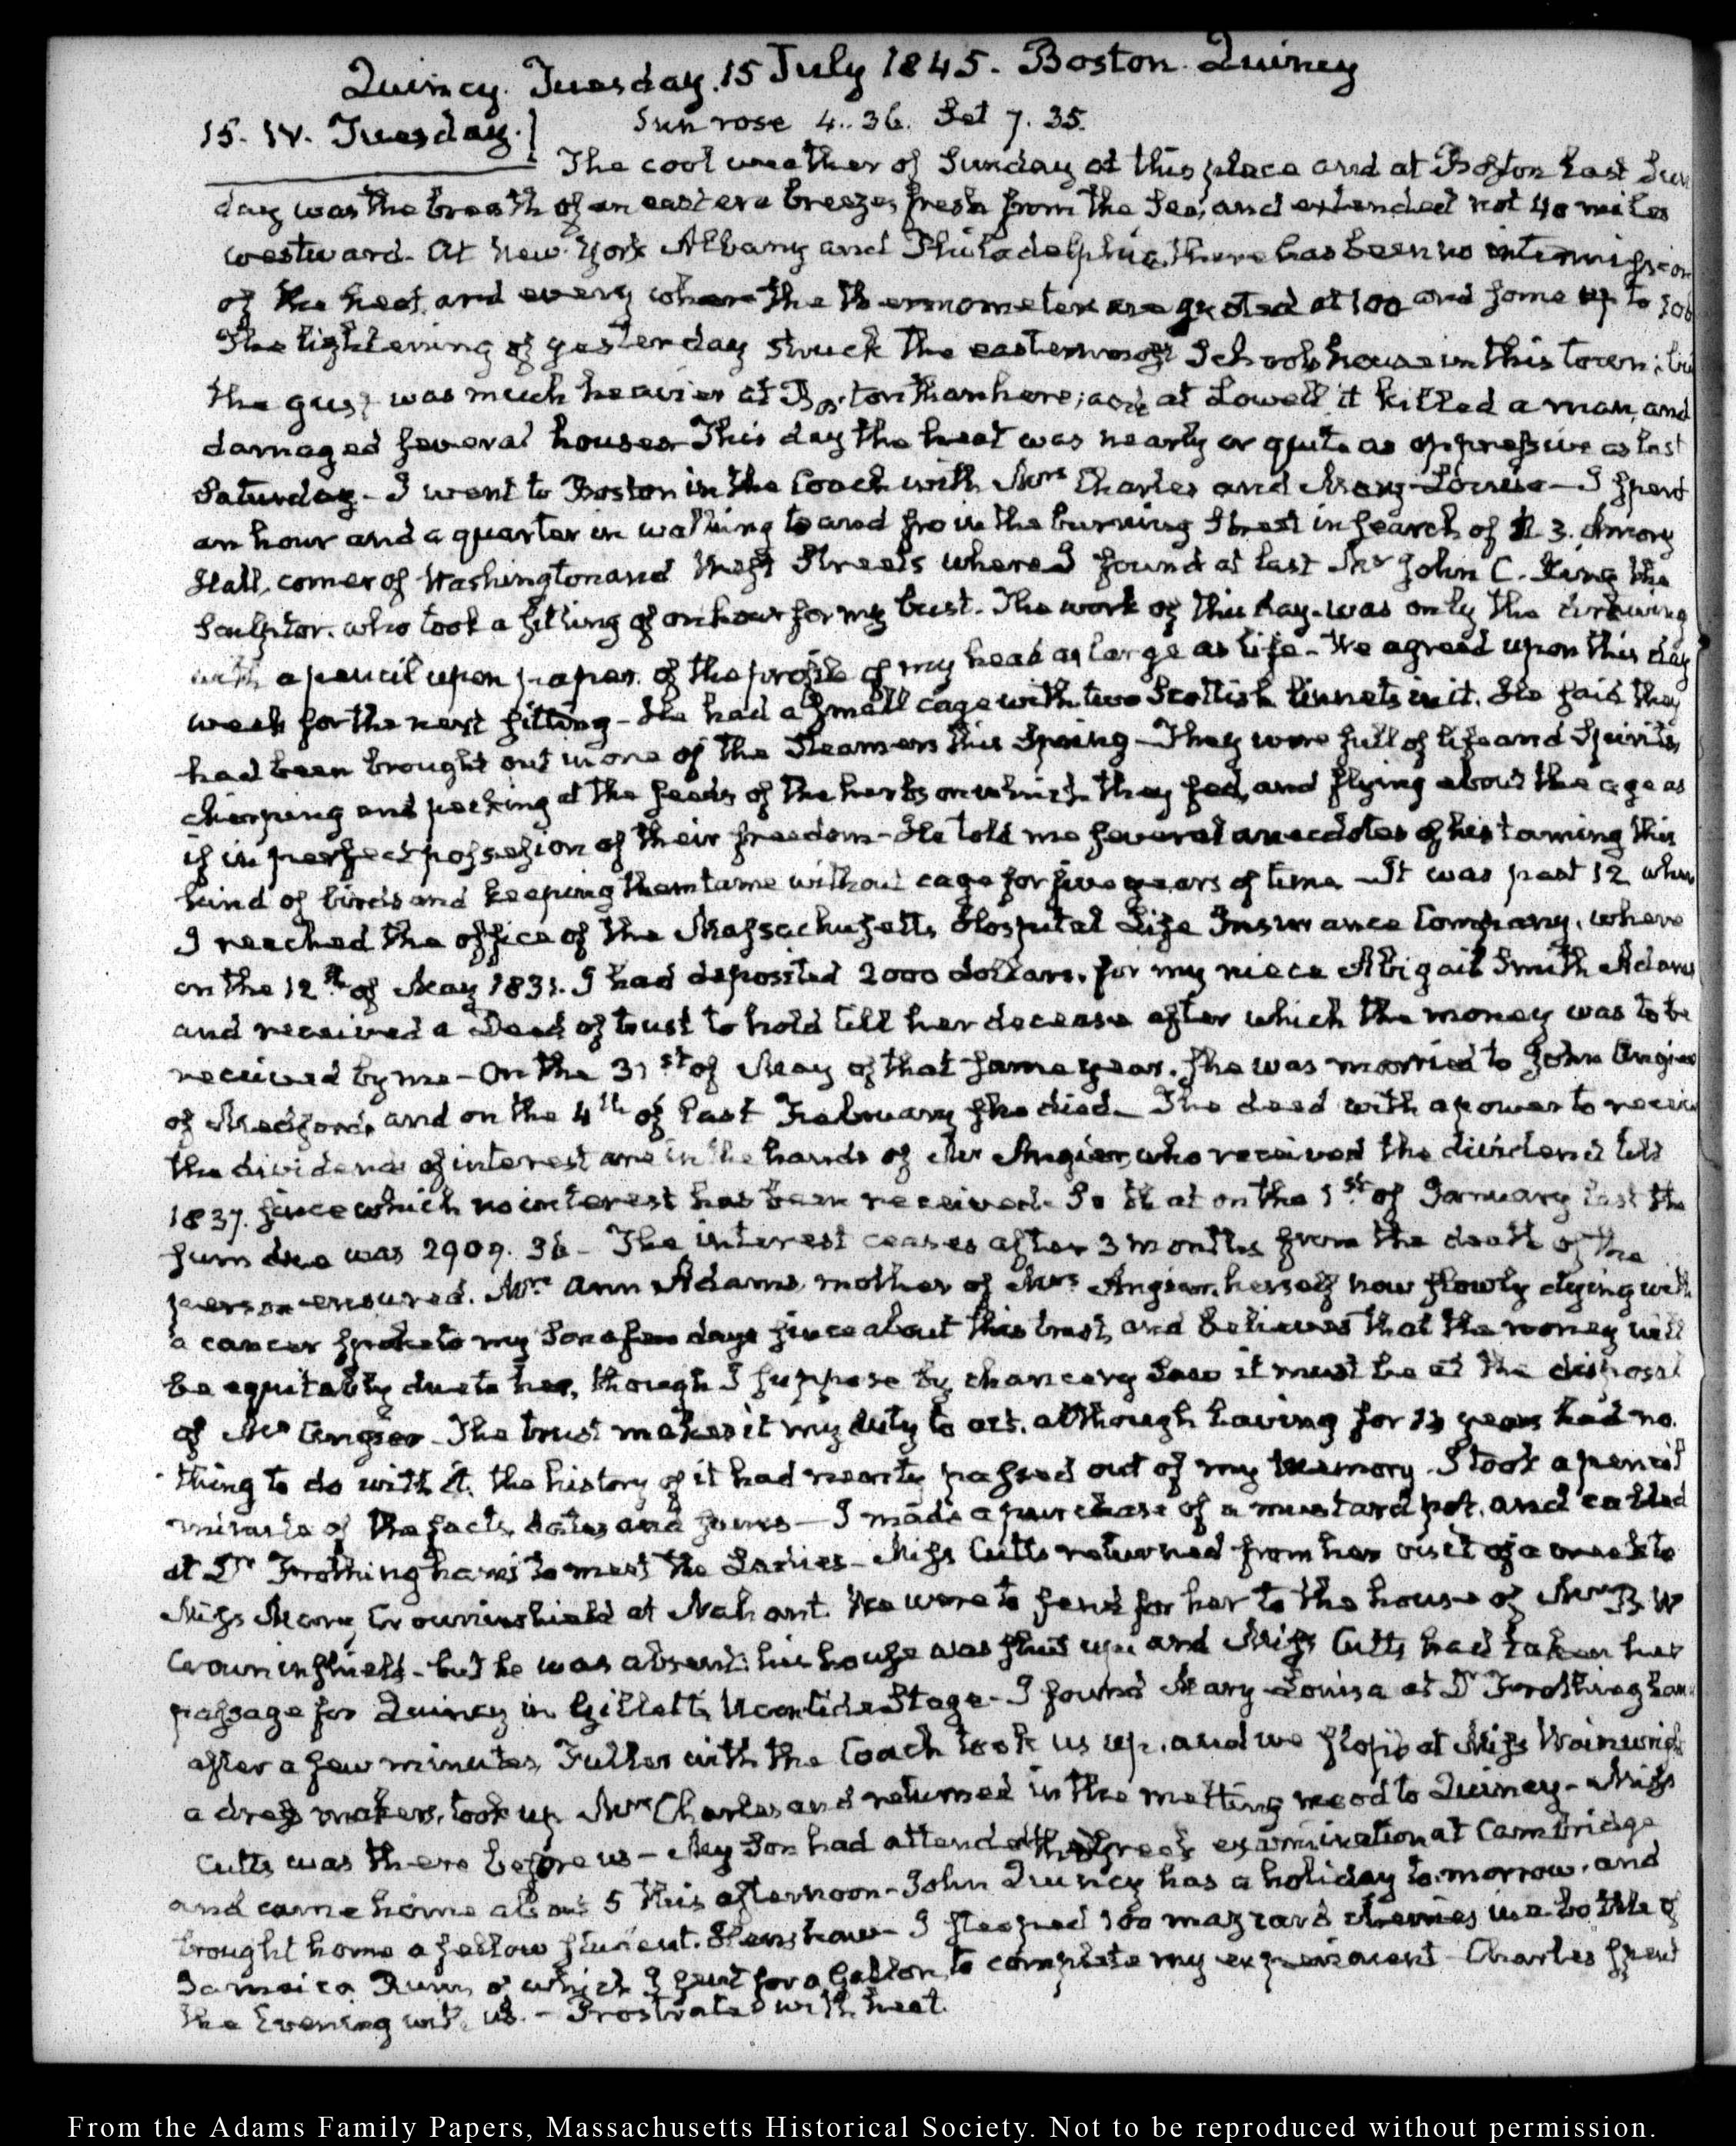 Quincy. Tuesday. 15 July 1845. Boston. Quincy
15. IV. Tuesday. Sun rose 4..36. Set 7. 35.
The cool weather of Sunday at this place and at Boston last Sun
day was the breath of an eastern breeze, fresh from the Sea, and extended not 40 miles
westward. At New-York Albany and Philadelphia, there has been no intermission
of the heat, and every where the thermometer are quoted at 100 and some up to 106
The lightening of yesterday struck the easternmost School house in this town; but
the gust was much heavier at Boston than here; and at Lowell it killed a man, and
damaged several houses. This day the heat was nearly or quite as oppressive as last
Saturday- I went to Boston in the Coach with Mrs Charles and Mary-Louisa- I spent
an hour and a quarter in walking to and fro in the burning Street in search of N. 3. Amory
Hall, corner of Washington and West Streets where I found at last Mr John C. King the
Sculptor. who took a sitting of an hour for my bust. The work of this day was only the drawing
with a pencil upon paper. of the profile of my head as large as life- We agreed upon this day
week for the next sitting- He had a small cage with two Scottish linnets in it. He said they
had been brought out in one of the Steamers this Spring- They were full of life and Spirits,
chirping and pecking at the seeds of the herbs on which they fed, and flying about the cage as
if in perfect possession of their freedom- He told me several anecdotes of his taming this
kind of birds and keeping them tame without cage for five years of time- It was past 12 when
I reached the office of the Massachusetts Hospital Life Insurance Company, where
on the 12th of May 1831. I had deposited 2000 dollars, for my niece Abigail Smith Adams
and received a Deed of trust to hold till her decease after which the money was to be
received by me- On the 31st of May of that same year. she was married to John Angier
of Medford, and on the 4th of last February she died- The deed with a power to receive
the dividends of interest are in the hands of Mr Angier, who received the dividends till
1837. since which no interest has been received. So that on the 1st of January last the
sum due was 2909. 36- The interest ceases after 3 months from the death of the
person ensured. Mrs Ann Adams, mother of Mrs Angier, herself now slowly dying with
a cancer spoke to my Son a few days since about this trust, and believes that the money will
be equitably due to her, though I suppose by chancery Law it must be at the disposal
of Mr Angier- The trust makes it my duty to act. although having for 13 years had no.
thing to do with it, the history of it had nearly passed out of my memory. I took a pencil
minute of the facts, dates and sums- I made a purchase of a mustard pot, and called
at Dr Frothingham's to meet the Ladies- Miss Cutts returned from her visit of a week to
Miss Mary Crowninshield at Nahant. We were to send for her to the house of Mr B W
Crowninshield- but he was absent: his house was shut up and Miss Cutts had taken her
passage for Quincy in Gillett's Stage- I found Mary-Louisa at Dr Frothingham
after a few minutes, Fuller with the Coach took us up, and we stop'd at Miss Wainwright
a dress makers, took up Mrs Charles and returned in the melting mood to Quincy- Miss
Cutts was there before us- My Son had attended the Greek examination at Cambridge
and came home about 5 this afternoon- John Quincy has a holiday to morrow, and
brought home a fellow student. Henshaw- I steeped 100 mazzard cherries in a bottle of
Jamaica Rum, of which I sent for a Gallon, to complete my experiment- Charles spent
the Evening with us.- Prostrated with heat.
From the Adams Family Papers, Massachusetts Historical Society. Not to be reproduced without permission.